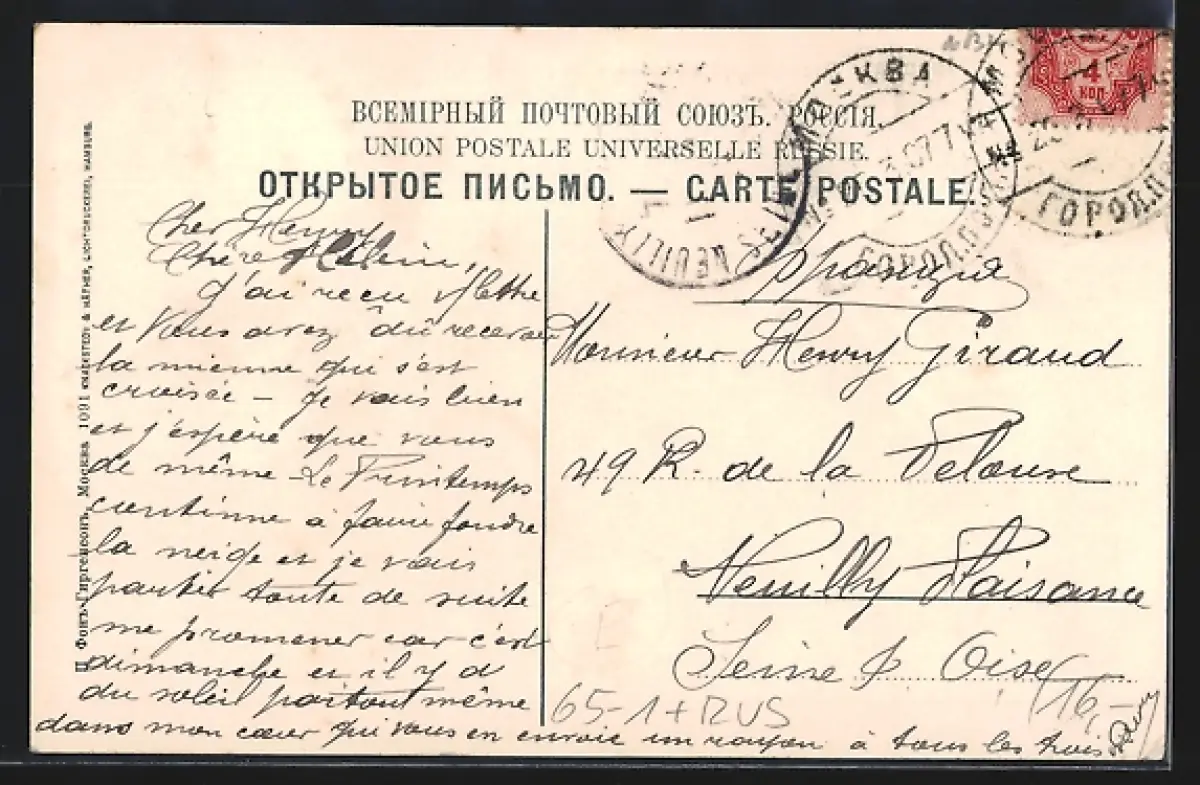 ВСЕМІРНЫЙ ПОЧТОВЫЙ СОЮЗЪ. РОССІЯ.
UNION POSTALE UNIVERSELLE RUSSIE.
ОТКРЫТОЕ ПИСЬМО. — CARTE POSTALE.
4
КОП
МОСКВА
ГОРОД.ПО
NEUILLY
Cher Henry
Chère
J'ai reçu v/lettre
et vous avez dû recevoir
la mienne qui s'est
croisée – Je vais bien
et j'espère que vous
de même – Le Printemps
continue à faire fondre
la neige et je vais
partir toute de suite
me promener car c'est
dimanche et il y a
du soleil partout même
dans mon cœur qui vous en envoie un rayon à tous les trois
Франція
Monsieur Henry Giraud
49 R. de la Pelouse
Neuilly Plaisance
Seine & Oise
65-1+RUS
16,-
П. Фонъ-Гиргенсонъ, Москва 1091 KNACKSTEDT & NÄTHER, LICHTDRUCKEREI, HAMBURG.